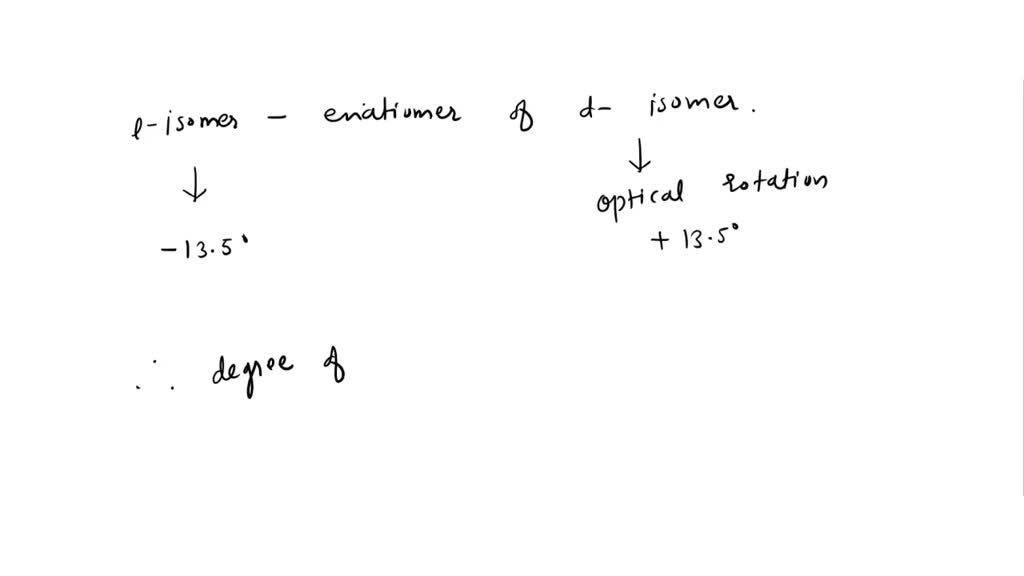 l-isomer – enatiomer of d- isomer.
↓ ↓
optical rotation
-13.5° + 13.5°
∴ degree of